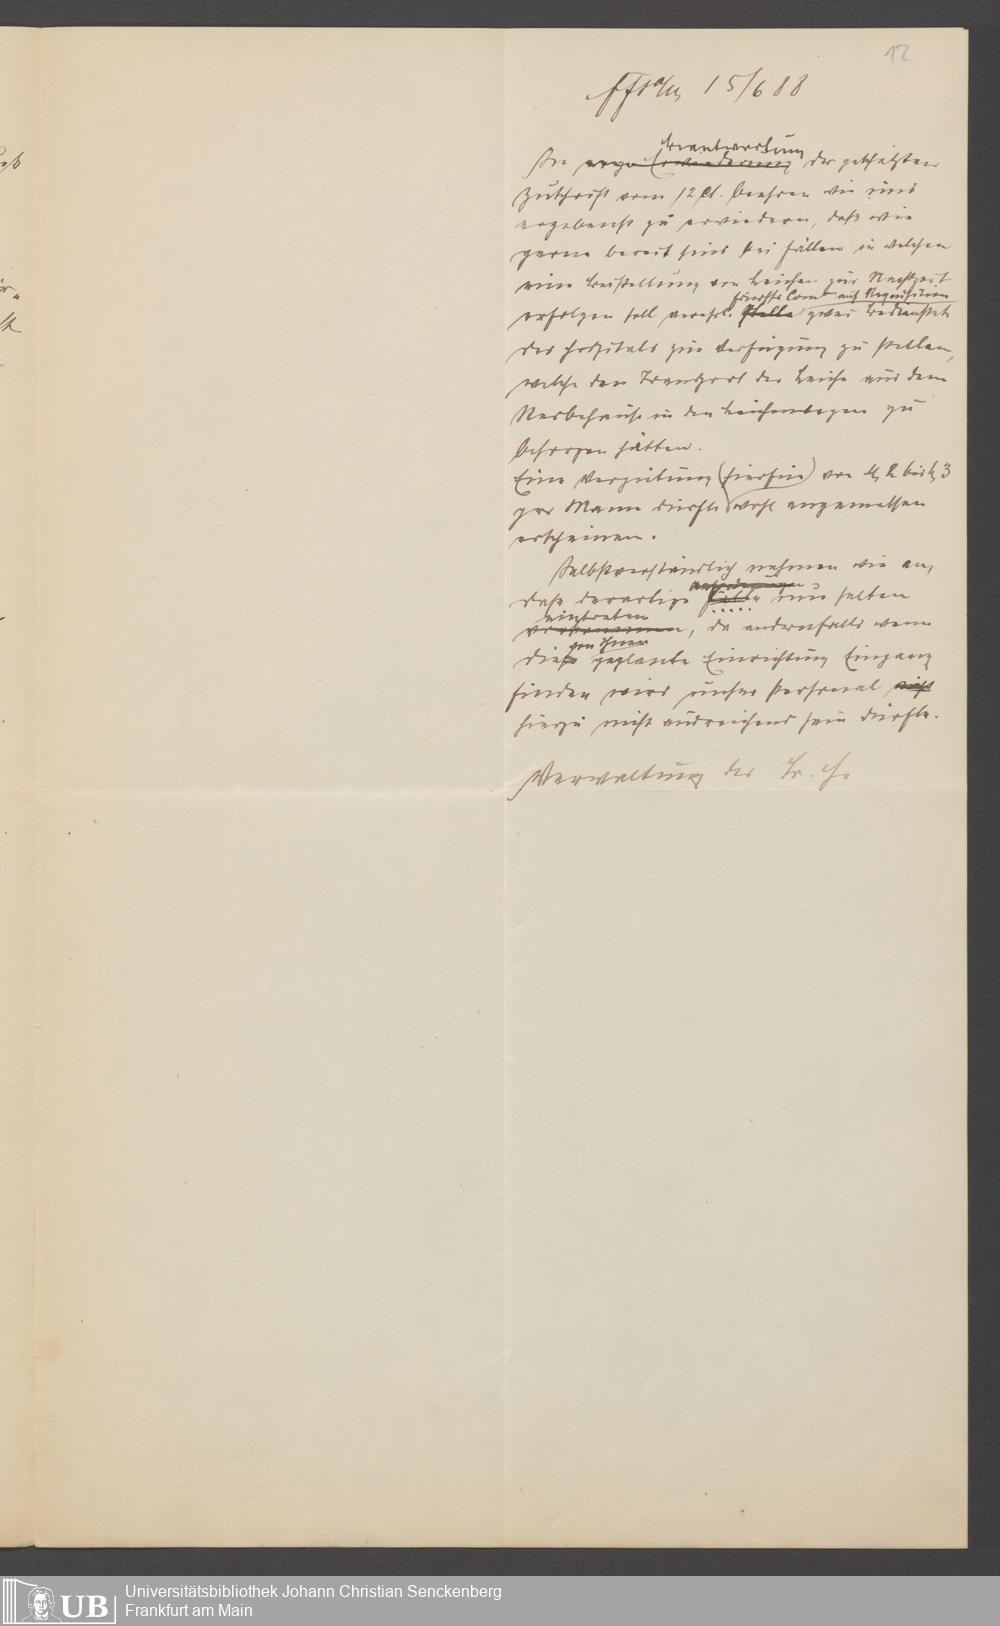 12
Ffta/M, 15/6 88
In ergeb. Erwiederung Beantwortung der geschätzten
Zuschrift vom 12 ct. beehren wir uns
ergebenst zu erwiedern, daß wir
gerne bereit sind bei Fällen in welchen
eine Beistellung von Leichen zur Nachtzeit
erfolgen soll verehrl. Stelle Friedhfs Comn auf Requisition zwei Bedienstete
des Hospitals zur Verfügung zu stellen,
welche den Transport der Leiche aus dem
Sterbehause in den Leichenwagen zu
besorgen hätten.
Eine Vergütung (hierfür) von M 2 bis M 3
per Mann dürfte wohl angemessen
erscheinen.
Selbstverständlich nehmen wir an,
daß derartige Fälle Anforderungen nur selten
vorkommen eintreten, da andernfalls wenn
diese von Ihnen geplante Einrichtung Eingang
finden wird unser Personal nicht
hierzu nicht ausreichend sein dürfte.
Verwaltung des Hr. H.
Universitätsbibliothek Johann Christian Senckenberg
Frankfurt am Main
UB